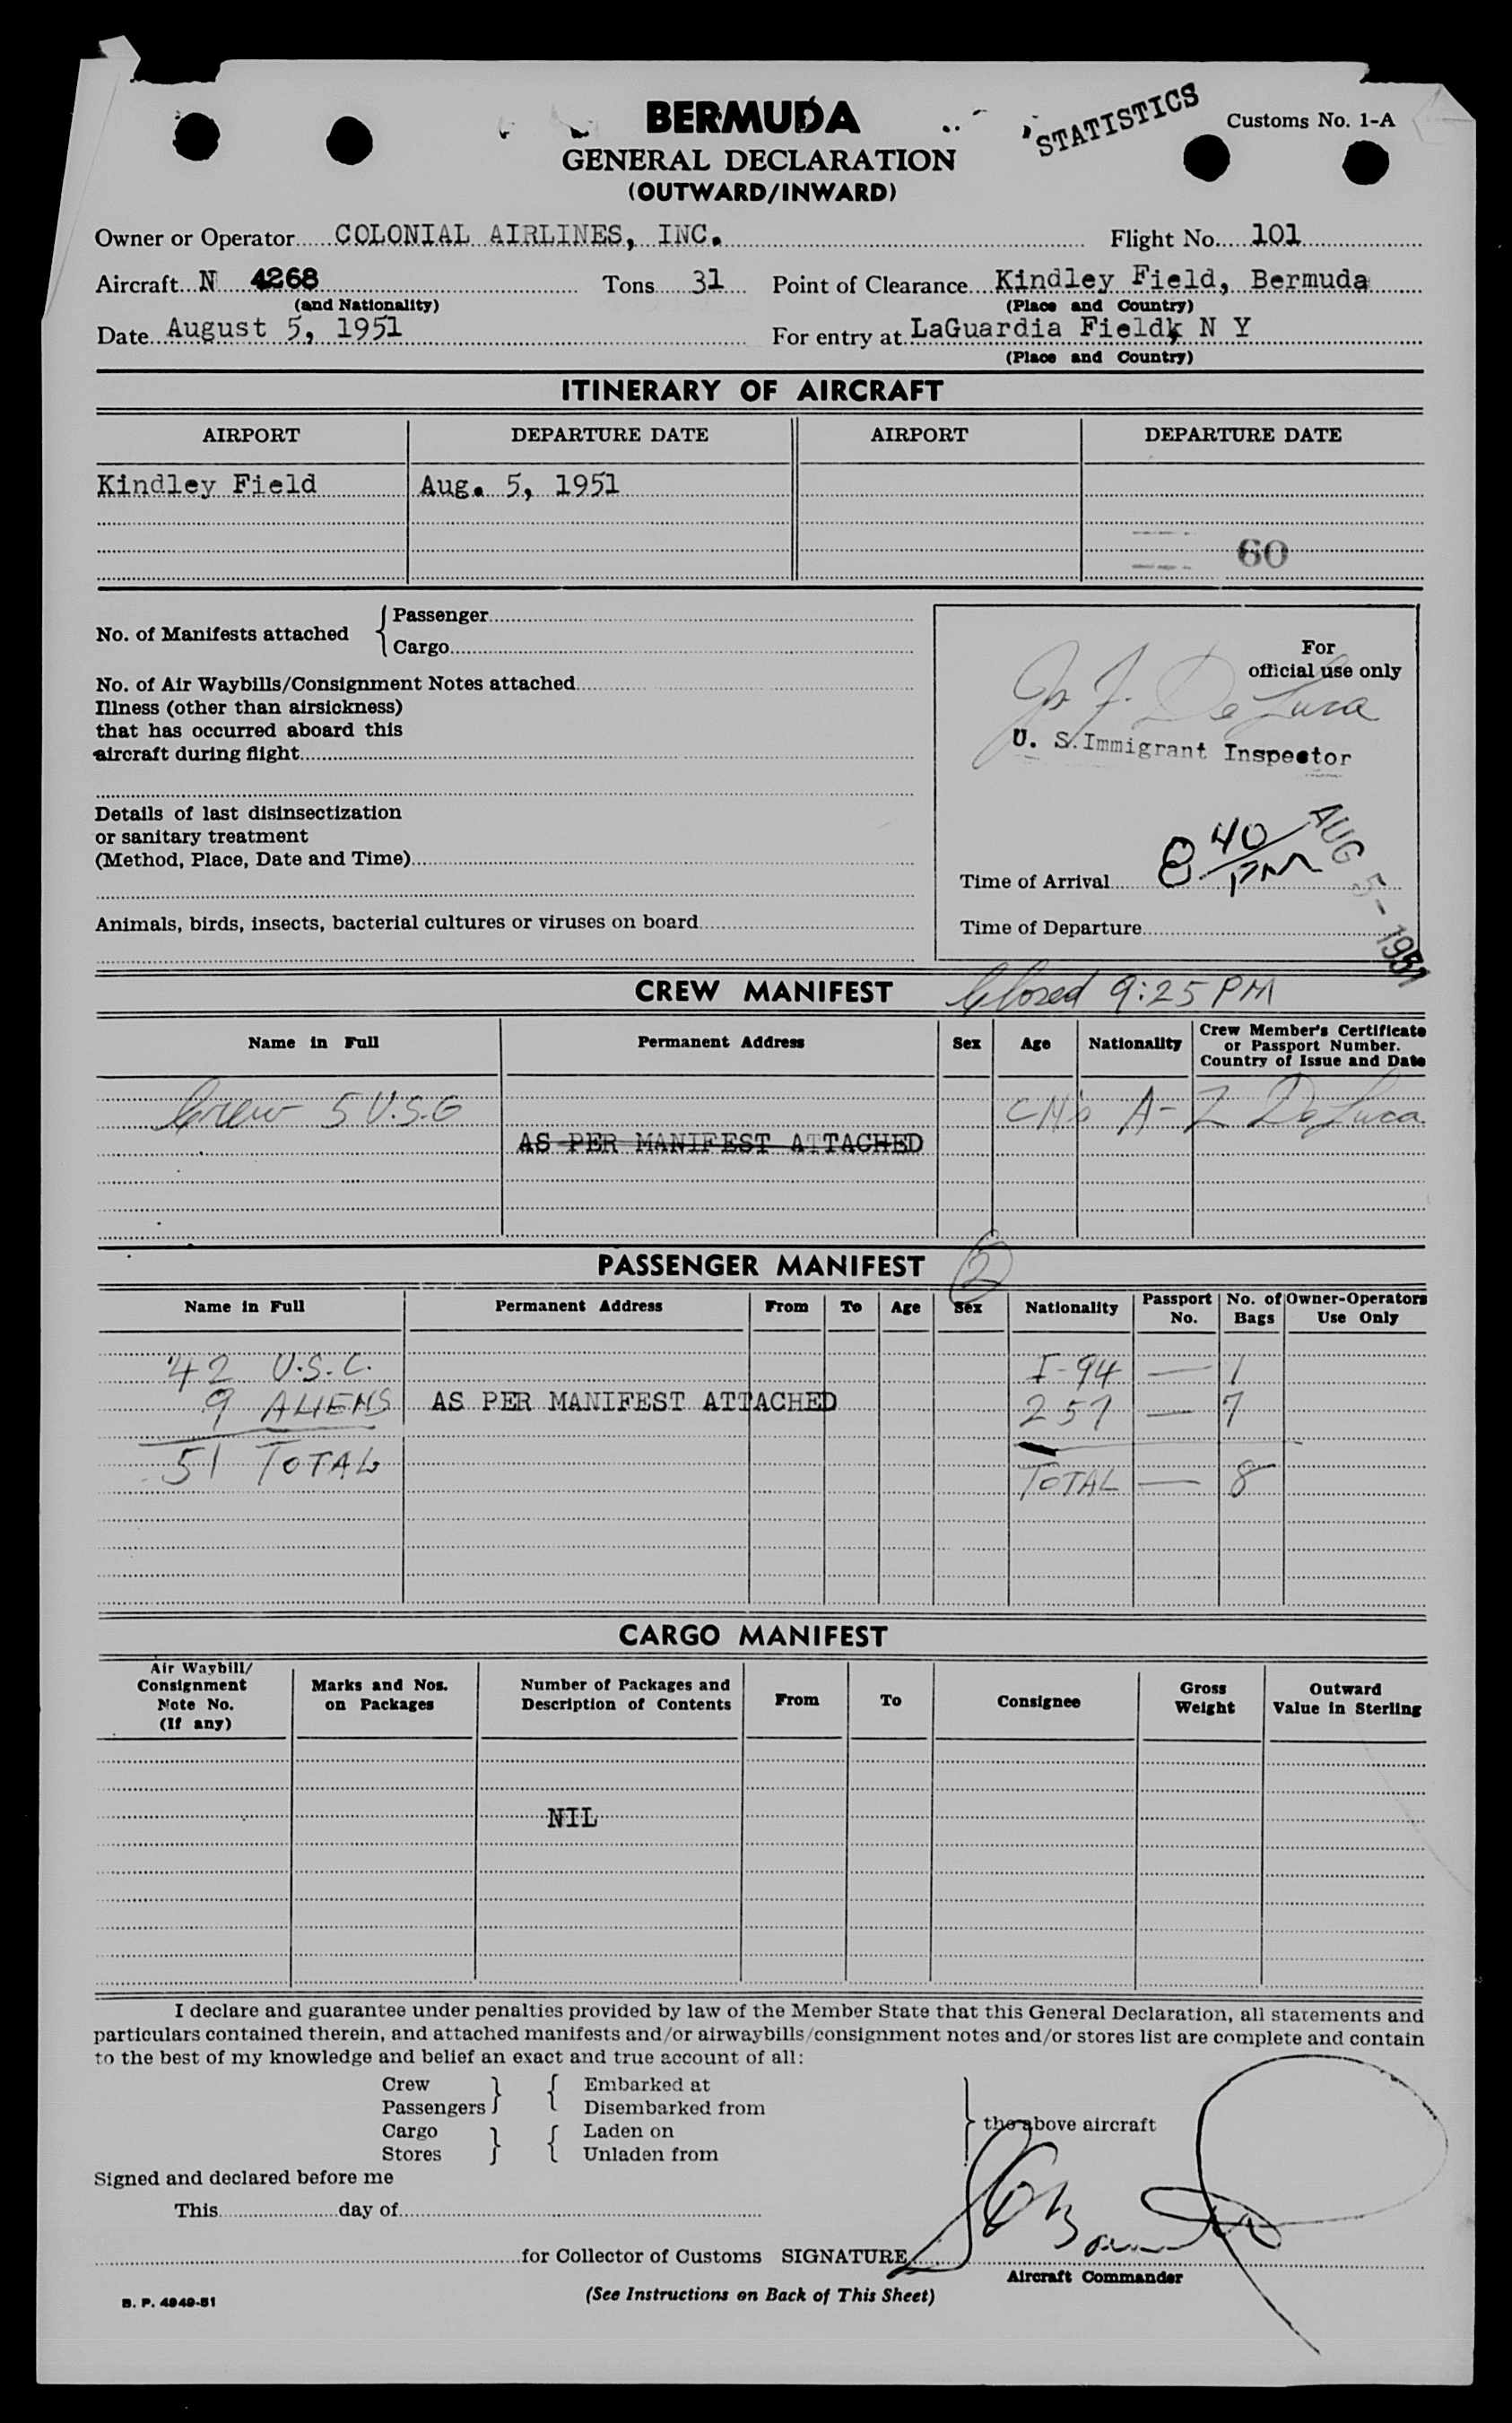 BERMUDA
STATISTICS
Customs No. 1-A
GENERAL DECLARATION
(OUTWARD/INWARD)
Owner or Operator COLONIAL AIRLINES, INC. Flight No. 101
Aircraft N 4268 Tons 31 Point of Clearance Kindley Field, Bermuda
(and Nationality) (Place and Country)
Date August 5, 1951 For entry at LaGuardia Field, N Y
(Place and Country)
ITINERARY OF AIRCRAFT
AIRPORT DEPARTURE DATE AIRPORT DEPARTURE DATE
Kindley Field Aug. 5, 1951
60
No. of Manifests attached { Passenger
Cargo
For
official use only
No. of Air Waybills/Consignment Notes attached
Illness (other than airsickness)
that has occurred aboard this
aircraft during flight
De Luca
U. S. Immigrant Inspector
Details of last disinsectization
or sanitary treatment
(Method, Place, Date and Time)
Time of Arrival 8 40 PM
AUG 5 - 1951
Animals, birds, insects, bacterial cultures or viruses on board
Time of Departure
CREW MANIFEST Closed 9:25 PM
Name in Full Permanent Address Sex Age Nationality Crew Member's Certificate or Passport Number. Country of Issue and Date
Crew 5 U.S.C A- De Luca
AS PER MANIFEST ATTACHED
PASSENGER MANIFEST 2
Name in Full Permanent Address From To Age Sex Nationality Passport No. No. of Bags Owner-Operators Use Only
42 U.S.C. I-94 — 1
9 ALIENS AS PER MANIFEST ATTACHED 257 — 7
51 TOTAL TOTAL — 8
CARGO MANIFEST
Air Waybill/ Consignment Note No. (If any) Marks and Nos. on Packages Number of Packages and Description of Contents From To Consignee Gross Weight Outward Value in Sterling
NIL
I declare and guarantee under penalties provided by law of the Member State that this General Declaration, all statements and
particulars contained therein, and attached manifests and/or airwaybills/consignment notes and/or stores list are complete and contain
to the best of my knowledge and belief an exact and true account of all:
Crew } { Embarked at
Passengers Disembarked from
} the above aircraft
Cargo } { Laden on
Stores Unladen from
Signed and declared before me
This day of
for Collector of Customs SIGNATURE
Aircraft Commander
B. P. 4949-51
(See Instructions on Back of This Sheet)